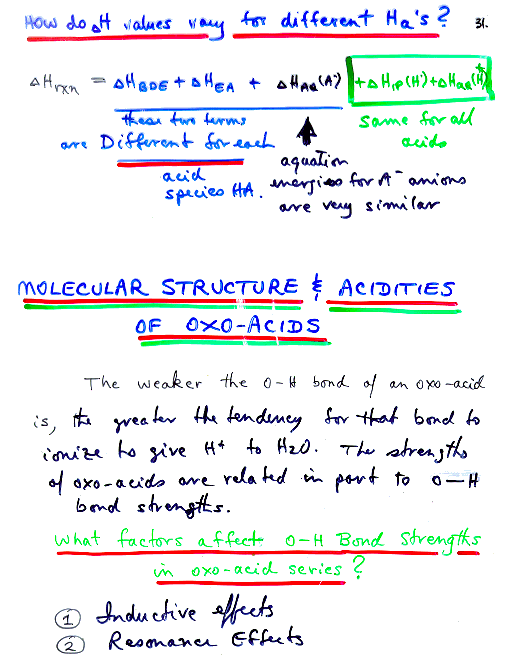 How do ΔH values vary for different Ha's? 31.
ΔHrxn = ΔHBDE + ΔHEA + ΔHAQ(A⁻) + ΔHIP(H) + ΔHaq(H⁺)
these two terms
are Different for each
acid
species HA.
aquation
energies for A⁻ anions
are very similar
Same for all
acids
MOLECULAR STRUCTURE & ACIDITIES
OF OXO-ACIDS
The weaker the O-H bond of an oxo-acid
is, the greater the tendency for that bond to
ionize to give H⁺ to H2O. The strengths
of oxo-acids are related in part to O-H
bond strengths.
What factors affect O-H Bond Strengths
in oxo-acid series?
① Inductive effects
② Resonance Effects